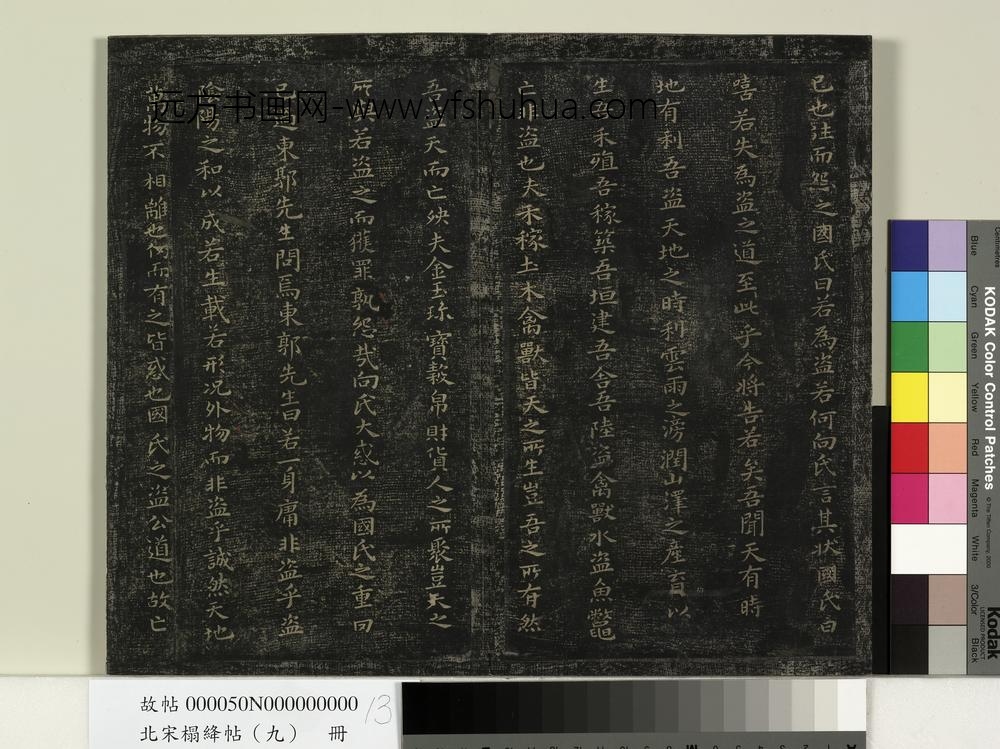 已也往而怨之國氏曰若為盗若何向氏言其状國氏曰
嘻若失為盗之道至此乎今將告若矣吾聞天有時
地有利吾盗天地之時利雲雨之滂潤山澤之產育以
生吾禾殖吾稼築吾垣建吾舍吾陸盗禽獸水盗魚鼈
亡非盗也夫禾稼土木禽獸皆天之所生豈吾之所有然
吾盗天而亡殃夫金玉珎寶穀帛財貨人之所聚豈天之
所 若盗之而獲罪孰怨哉向氏大或以為國氏之重罔
己 過東郭先生問焉東郭先生曰若一身庸非盗乎盗
陰陽之和以成若生載若形况外物而非盗乎誠然天地
萬物不相離也仞而有之皆惑也國氏之盗公道也故亡
远方书画网-www.yfshuhua.com
故帖 000050N000000000 13
北宋榻絳帖（九） 冊
KODAK Color Control Patches
© The Tiffen Company, 2000
Centimetres
Blue
Cyan
Green
Yellow
Red
Magenta
White
3/Color
Black
Kodak
LICENSED PRODUCT